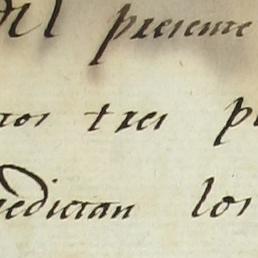 del presente
ros tres p
edictan los